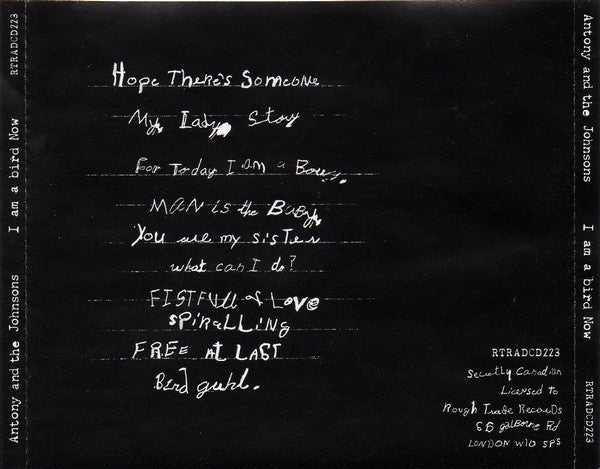 RTRADCD223
I am a bird Now
Antony and the Johnsons
Hope There's Someone
My Lady Story
For Today I am a Boy.
MAN is the BaBy
You are my sisTer
what can I do?
FISTFUll of LOve
SPiRaLLiNg
FREE AT LAST
Bird guhl.
RTRADCD223
Secretly Canadian
Licensed To
Rough Trade Records
66 golborne Rd
LONDON W10 5PS
Antony and the Johnsons
I am a bird Now
RTRADCD223